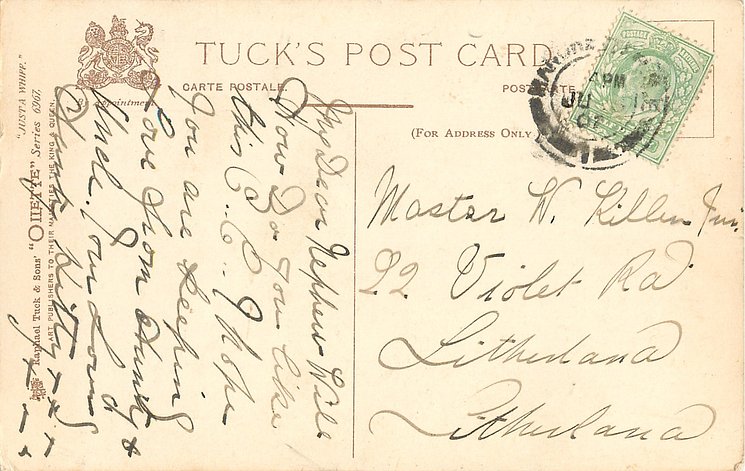 TUCK'S POST CARD
CARTE POSTALE.
POSTKARTE
By Appointment
(For Address Only)
"JUST A WHIFF."
Raphael Tuck & Sons' "OILETTE" Series 6967.
ART PUBLISHERS TO THEIR MAJESTIES THE KING & QUEEN.
PM
JU
07
Master W. Killen Jun.
22 Violet Rd
Litherland
Litherland
My Dear Nephew Will
How Do you like
this P.C. I hope
you are keeping
Love from Aunty &
Uncle. Your Loving
Aunt Kitty